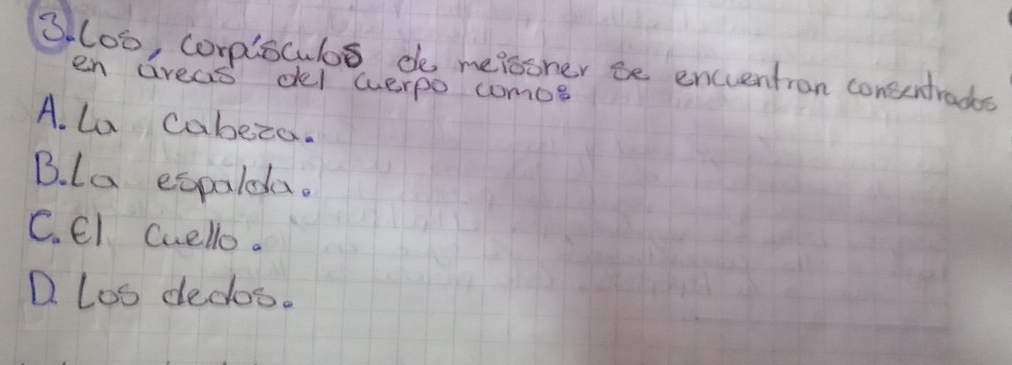 3. Los, corpisculos de meissner se encuentran consentrados
en áreas del cuerpo como:
A. La cabeza.
B. La espalda.
C. El cuello.
D. Los dedos.